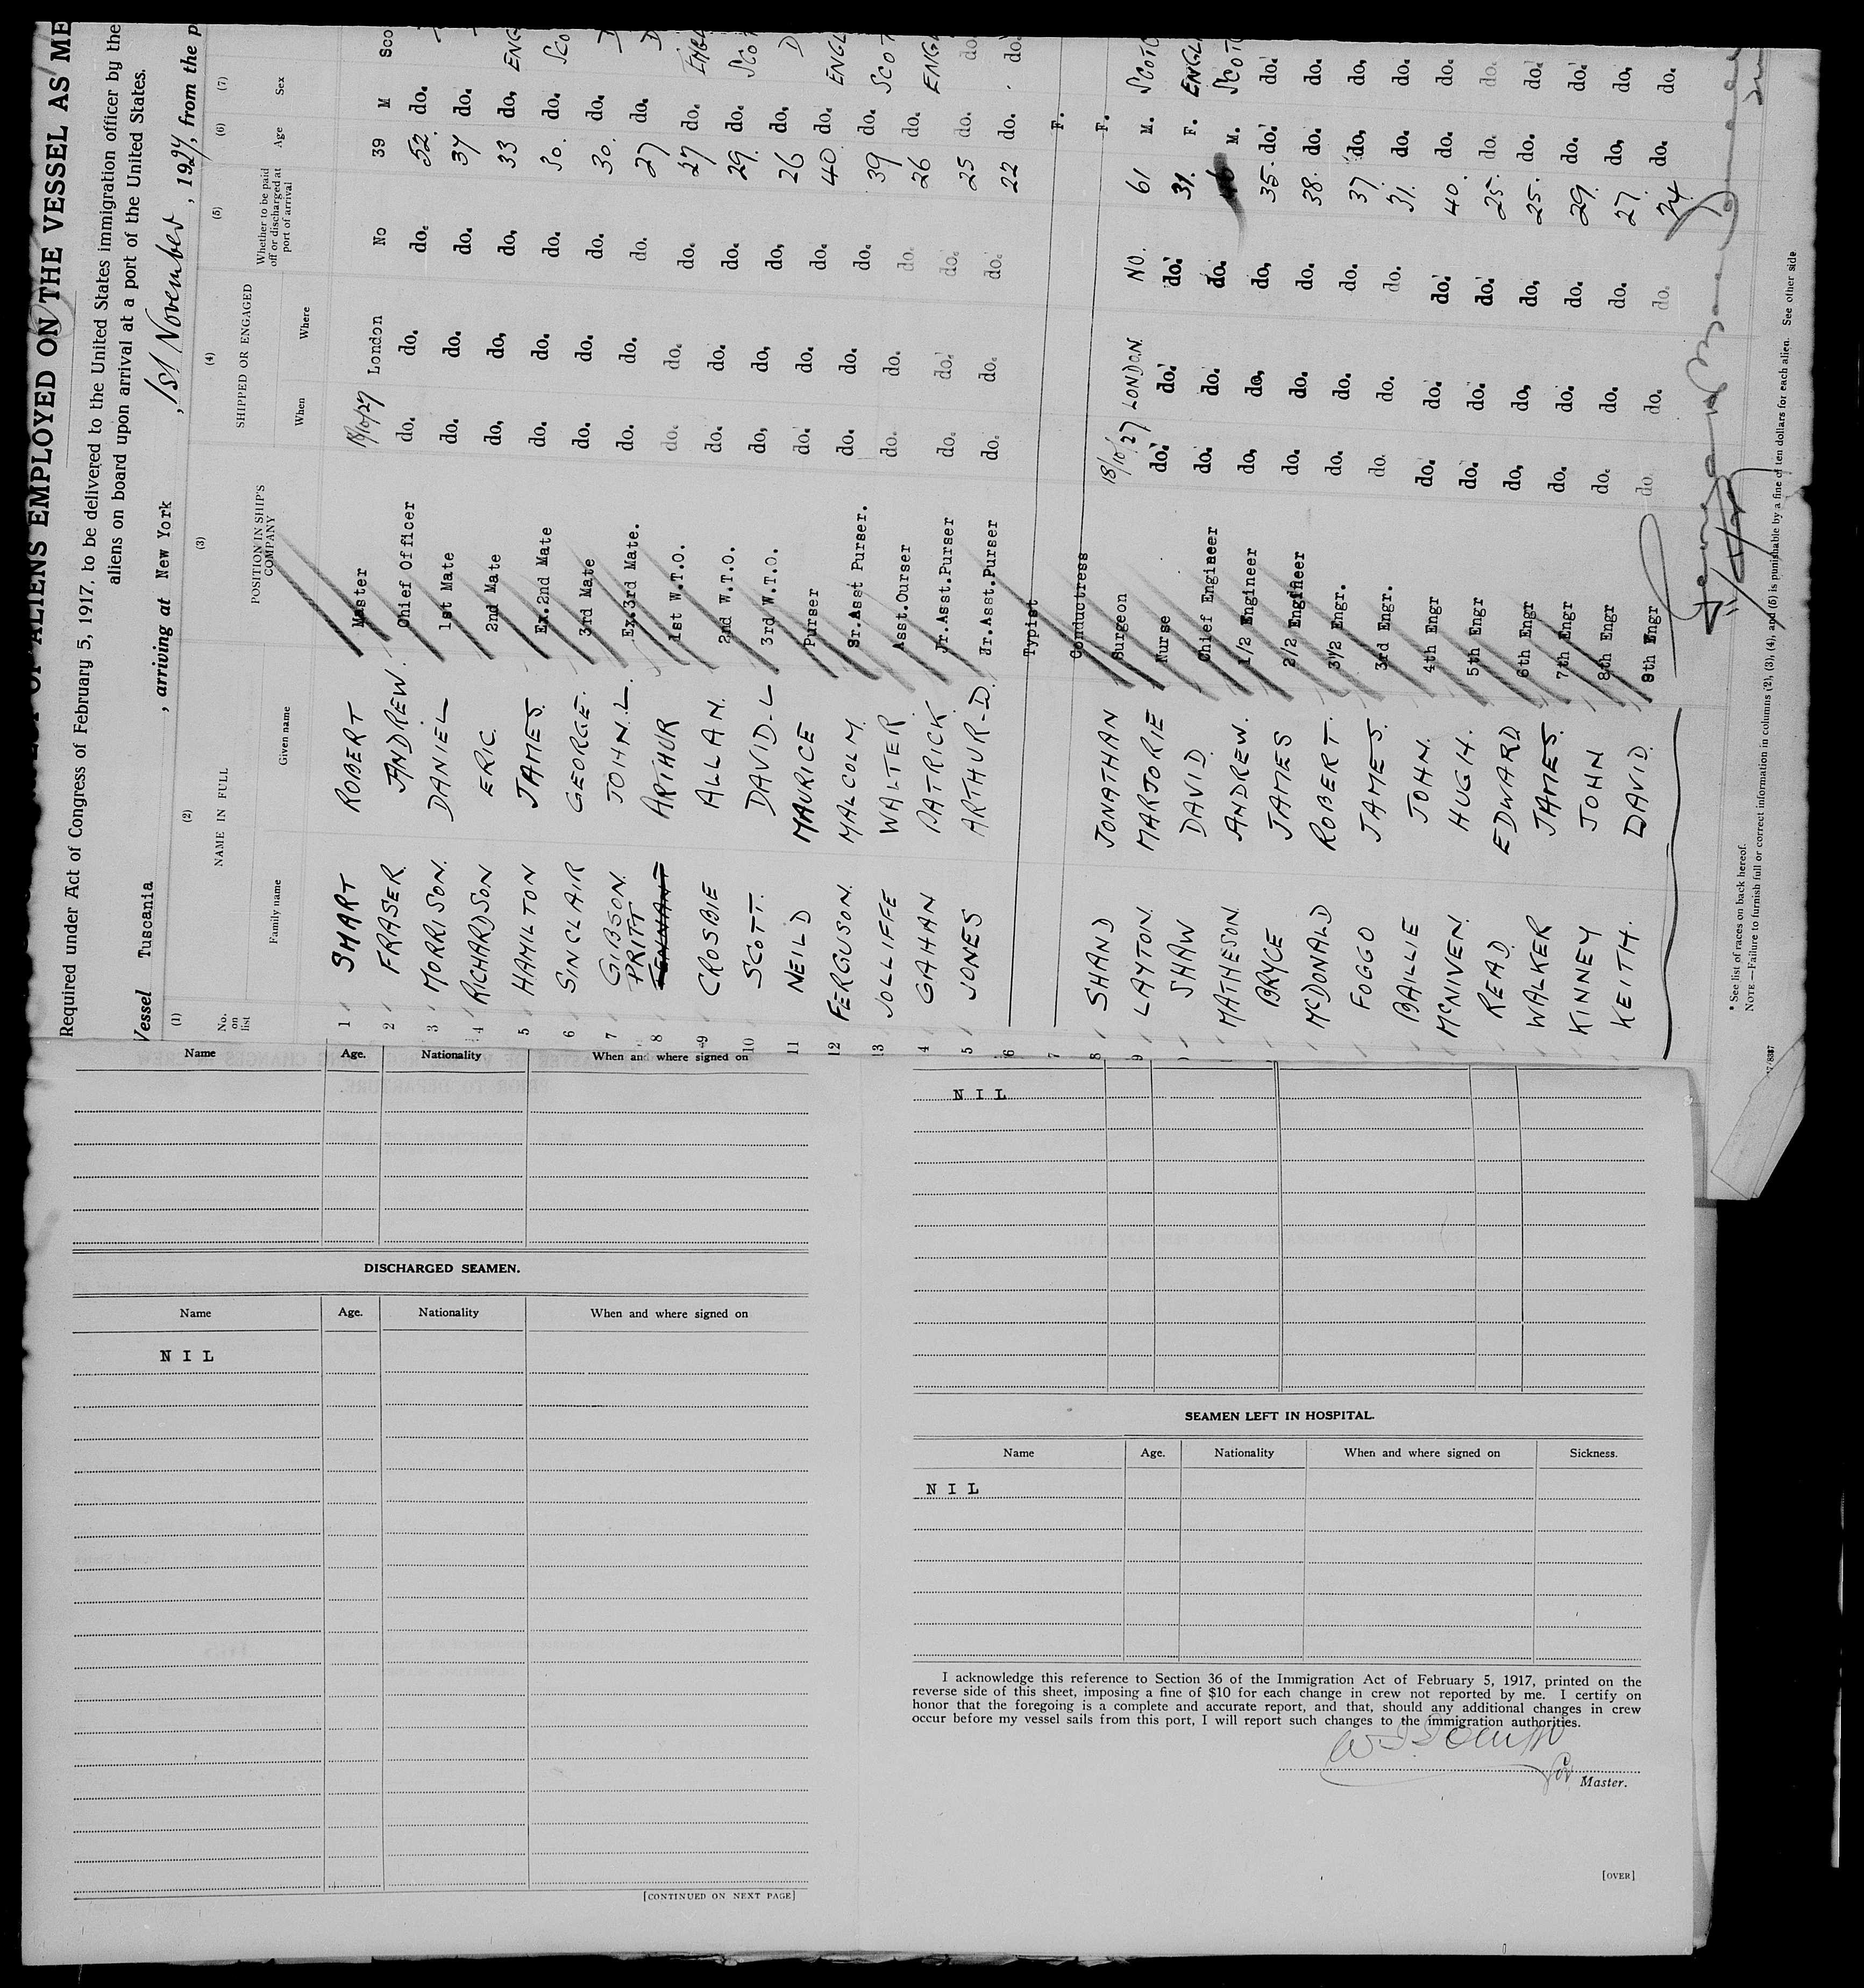 OF ALIENS EMPLOYED ON THE VESSEL AS ME
Required under Act of Congress of February 5, 1917, to be delivered to the United States immigration officer by the
aliens on board upon arrival at a port of the United States.
Vessel Tuscania , arriving at New York , 1st November , 1927, from the p
(1) (2) (3) (4) (5) (6) (7)
No. on list NAME IN FULL POSITION IN SHIP'S COMPANY SHIPPED OR ENGAGED Whether to be paid off or discharged at port of arrival Age Sex
Family name Given name When Where
1 SMART ROBERT Master 18/10/27 London No 39 M Sco
2 FRASER ANDREW. Chief Officer do. do. do. 52. do.
3 MORRISON. DANIEL 1st Mate do. do. do. 37 do.
4 RICHARDSON ERIC. 2nd Mate do, do, do, 33 do, ENG
5 HAMILTON JAMES. Ex.2nd Mate do. do. do. 30. do. SCO
6 SINCLAIR GEORGE. 3rd Mate do. do. do. 30. do.
7 GIBSON. JOHN.L. Ex.3rd Mate. do. do. do. 27 do.
8 PRITT ARTHUR 1st W.T.O. do. do. do. 27 do. ENGL
9 CROSBIE ALLAN. 2nd W.T.O. do. do. do. 29. do. SCOT
10 SCOTT. DAVID-L 3rd W.T.O. do, do, do, 26 do, D
11 NEILD MAURICE Purser do. do. do. 40. do. ENGL
12 FERGUSON. MALCOLM. Sr.Asst Purser. do. do. do. 39 do. SCOT
13 JOLLIFFE WALTER Asst.Ourser do. do. do. 26 do. ENGL
4 GAHAN PATRICK. Jr.Asst.Purser do. do. do. 25 do. do.
5 JONES ARTHUR-D. Jr.Asst.Purser do. do. do. 22 do. do.
6 Typist F.
7 Conductress F.
8 SHAND JONATHAN Surgeon 18/10/27 LONDON. NO. 61 M. SCOTC
9 LAYTON. MARJORIE Nurse do. do. do. 31. F. ENGL
SHAW DAVID. Chief Engineer do. do. do. M. SCOTC
MATHESON. ANDREW. 1/2 Engineer do, do, do, 35. do. do.
BRYCE JAMES 2/2 Engineer do. do. do. 38. do. do.
McDONALD ROBERT. 3/2 Engr. do. do. do. 37. do, do,
FOGGO JAMES. 3rd Engr. do. do. do. 31. do. do.
BAILLIE JOHN. 4th Engr do. do. do. 40. do. do.
McNIVEN. HUGH. 5th Engr do. do. do. 25. do. do.
READ. EDWARD 6th Engr do, do, do, 25. do. do.
WALKER JAMES. 7th Engr do. do. do. 29. do. do.
KINNEY JOHN 8th Engr do. do. do. 27. do, do,
KEITH. DAVID. 9th Engr do. do. do. 24 do. do.
* See list of races on back hereof.
NOTE—Failure to furnish full or correct information in columns (2), (3), (4), and (6) is punishable by a fine of ten dollars for each alien. See other side
Name Age. Nationality When and where signed on
DISCHARGED SEAMEN.
Name Age. Nationality When and where signed on
N I L
[CONTINUED ON NEXT PAGE]
N I L
SEAMEN LEFT IN HOSPITAL.
Name Age. Nationality When and where signed on Sickness.
N I L
I acknowledge this reference to Section 36 of the Immigration Act of February 5, 1917, printed on the
reverse side of this sheet, imposing a fine of $10 for each change in crew not reported by me. I certify on
honor that the foregoing is a complete and accurate report, and that, should any additional changes in crew
occur before my vessel sails from this port, I will report such changes to the immigration authorities.
for Master.
[OVER]